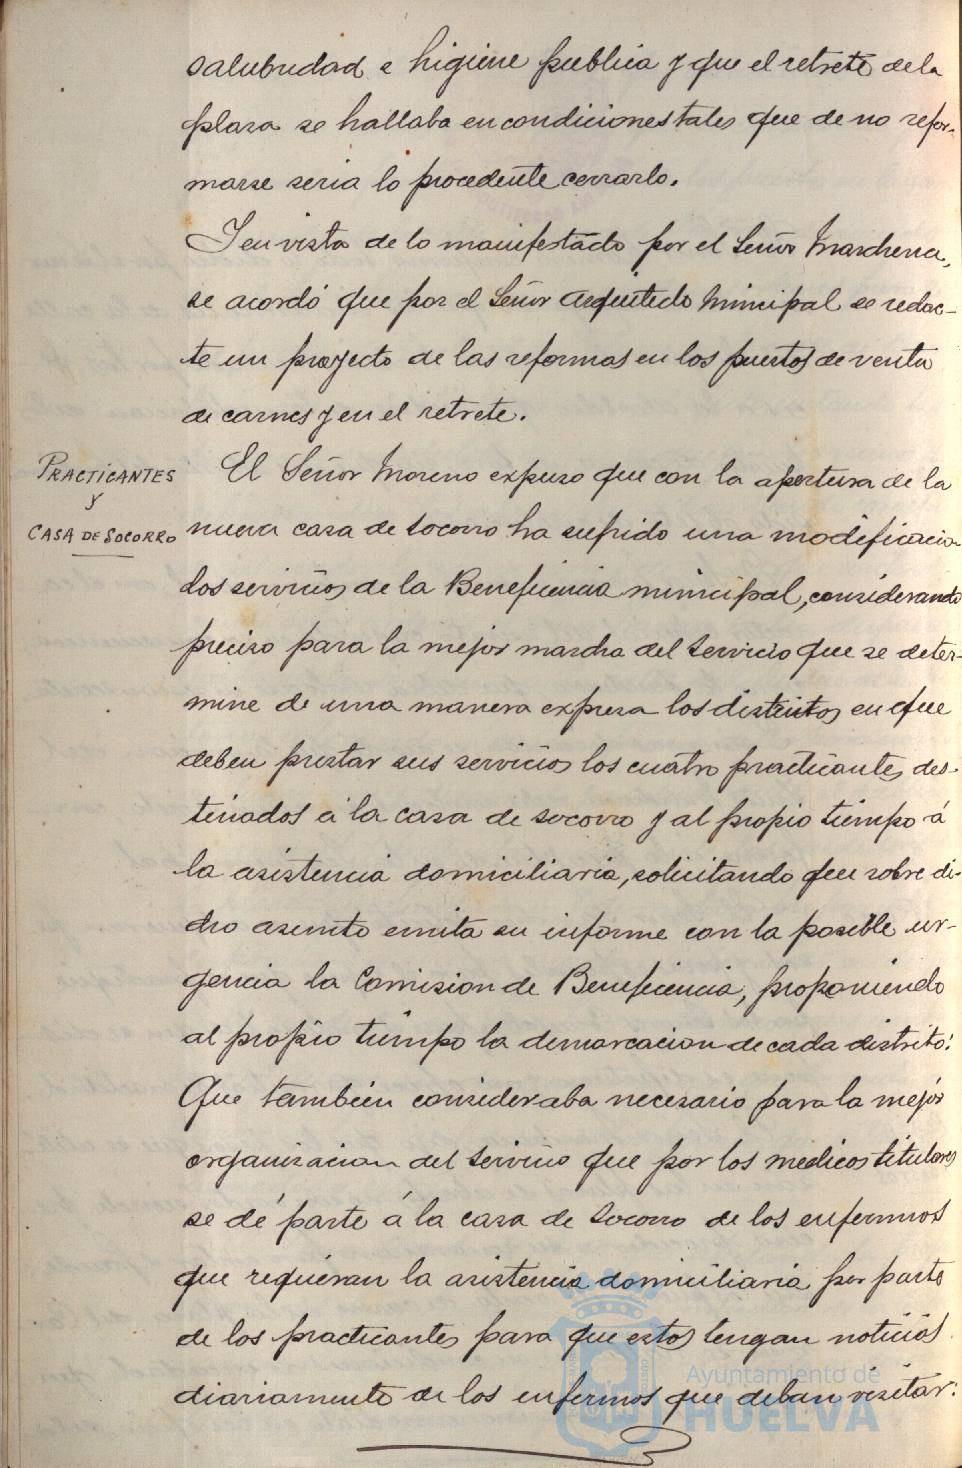 salubridad e higiene publica y que el retrete de la
plaza se hallaba en condiciones tales que de no refor-
marse seria lo procedente cerrarlo.
Y en vista de lo manifestado por el Señor Marchena,
se acordó que por el Señor Arquitecto Municipal se redac-
te un proyecto de las reformas en los puestos de venta
de carnes y en el retrete.
PRACTICANTES
Y
CASA DE SOCORRO
El Señor Moreno expuso que con la apertura de la
nueva casa de socorro ha sufrido una modificacion
los servicios de la Beneficencia municipal, considerando
preciso para la mejor marcha del servicio que se deter-
mine de una manera expresa los distritos en que
deben prestar sus servicios los cuatro practicantes des-
tinados a la casa de socorro y al propio tiempo á
la asistencia domiciliaria, solicitando que sobre di-
cho asunto emita su informe con la posible ur-
gencia la Comision de Beneficencia, proponiendo
al propio tiempo la demarcacion de cada distrito:
Que tambien consideraba necesario para la mejor
organizacion del servicio que por los medicos titulares
se dé parte á la casa de Socorro de los enfermos
que requieran la asistencia domiciliaria por parte
de los practicantes para que estos tengan noticias
diariamente de los enfermos que deban visitar:
Ayuntamiento de
HUELVA